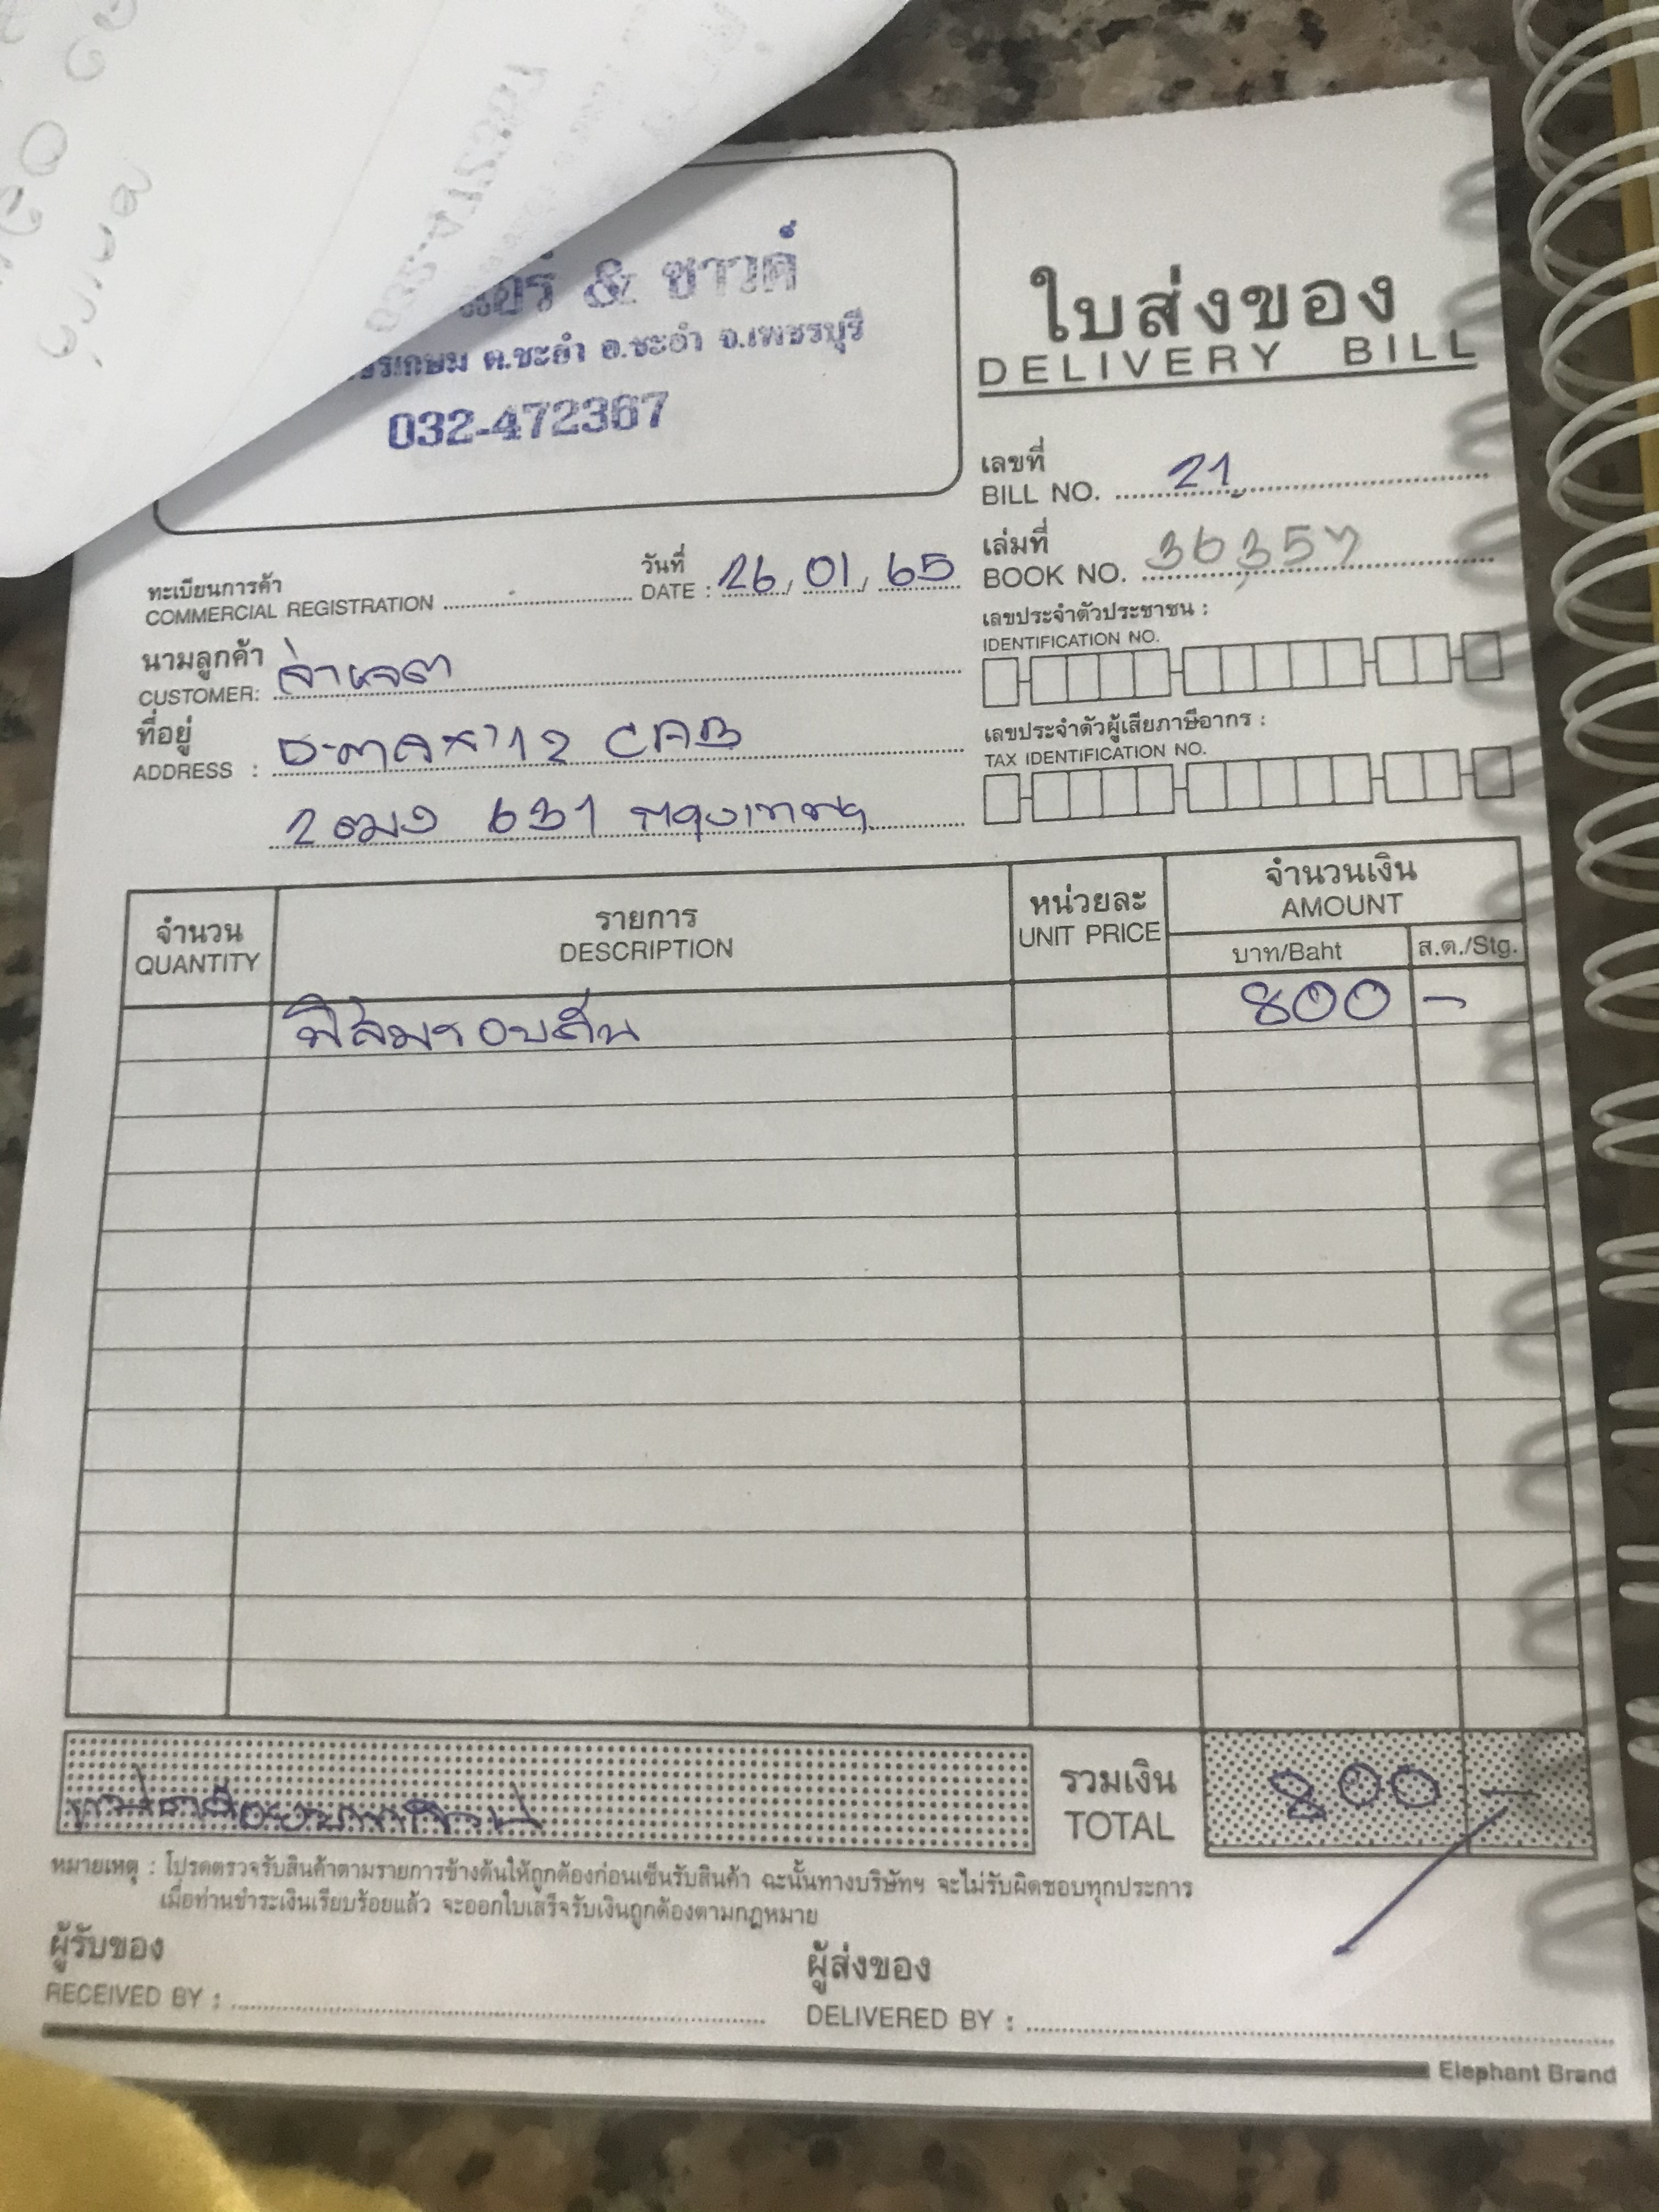 แอร์ & ซาวด์
ต.ชะอำ อ.ชะอำ จ.เพชรบุรี
032-472367
ใบส่งของ
DELIVERY BILL
เลขที่
BILL NO. 21
เล่มที่
BOOK NO. 36,357
ทะเบียนการค้า
COMMERCIAL REGISTRATION
วันที่
DATE : 26/01/65
เลขประจำตัวประชาชน :
IDENTIFICATION NO.
นามลูกค้า
CUSTOMER:
ที่อยู่
ADDRESS : 12 CAB
631 กรุงเทพฯ
เลขประจำตัวผู้เสียภาษีอากร :
TAX IDENTIFICATION NO.
จำนวน
QUANTITY
รายการ
DESCRIPTION
หน่วยละ
UNIT PRICE
จำนวนเงิน
AMOUNT
บาท/Baht
ส.ต./Stg.
ฟิล์มรอบคัน 800 -
รวมเงิน
TOTAL
800 -
หมายเหตุ : โปรดตรวจรับสินค้าตามรายการข้างต้นให้ถูกต้องก่อนเซ็นรับสินค้า ฉะนั้นทางบริษัทฯ จะไม่รับผิดชอบทุกประการ
เมื่อท่านชำระเงินเรียบร้อยแล้ว จะออกใบเสร็จรับเงินถูกต้องตามกฎหมาย
ผู้รับของ
RECEIVED BY :
ผู้ส่งของ
DELIVERED BY :
Elephant Brand